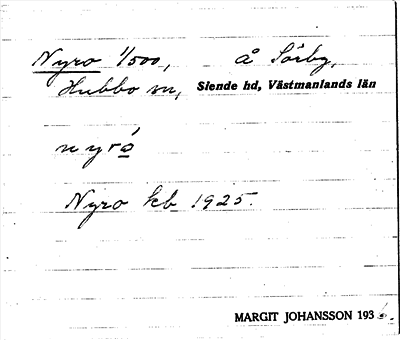 Nyro 1/500, å Sörby,
Hubbo sn, Siende hd, Västmanlands län
nyró
Nyro kb 1925.
MARGIT JOHANSSON 1936.